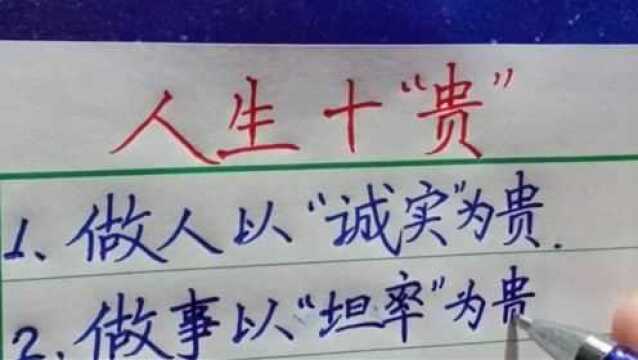 人生十“贵”
1、做人以“诚实”为贵.
2、做事以“坦率”为贵